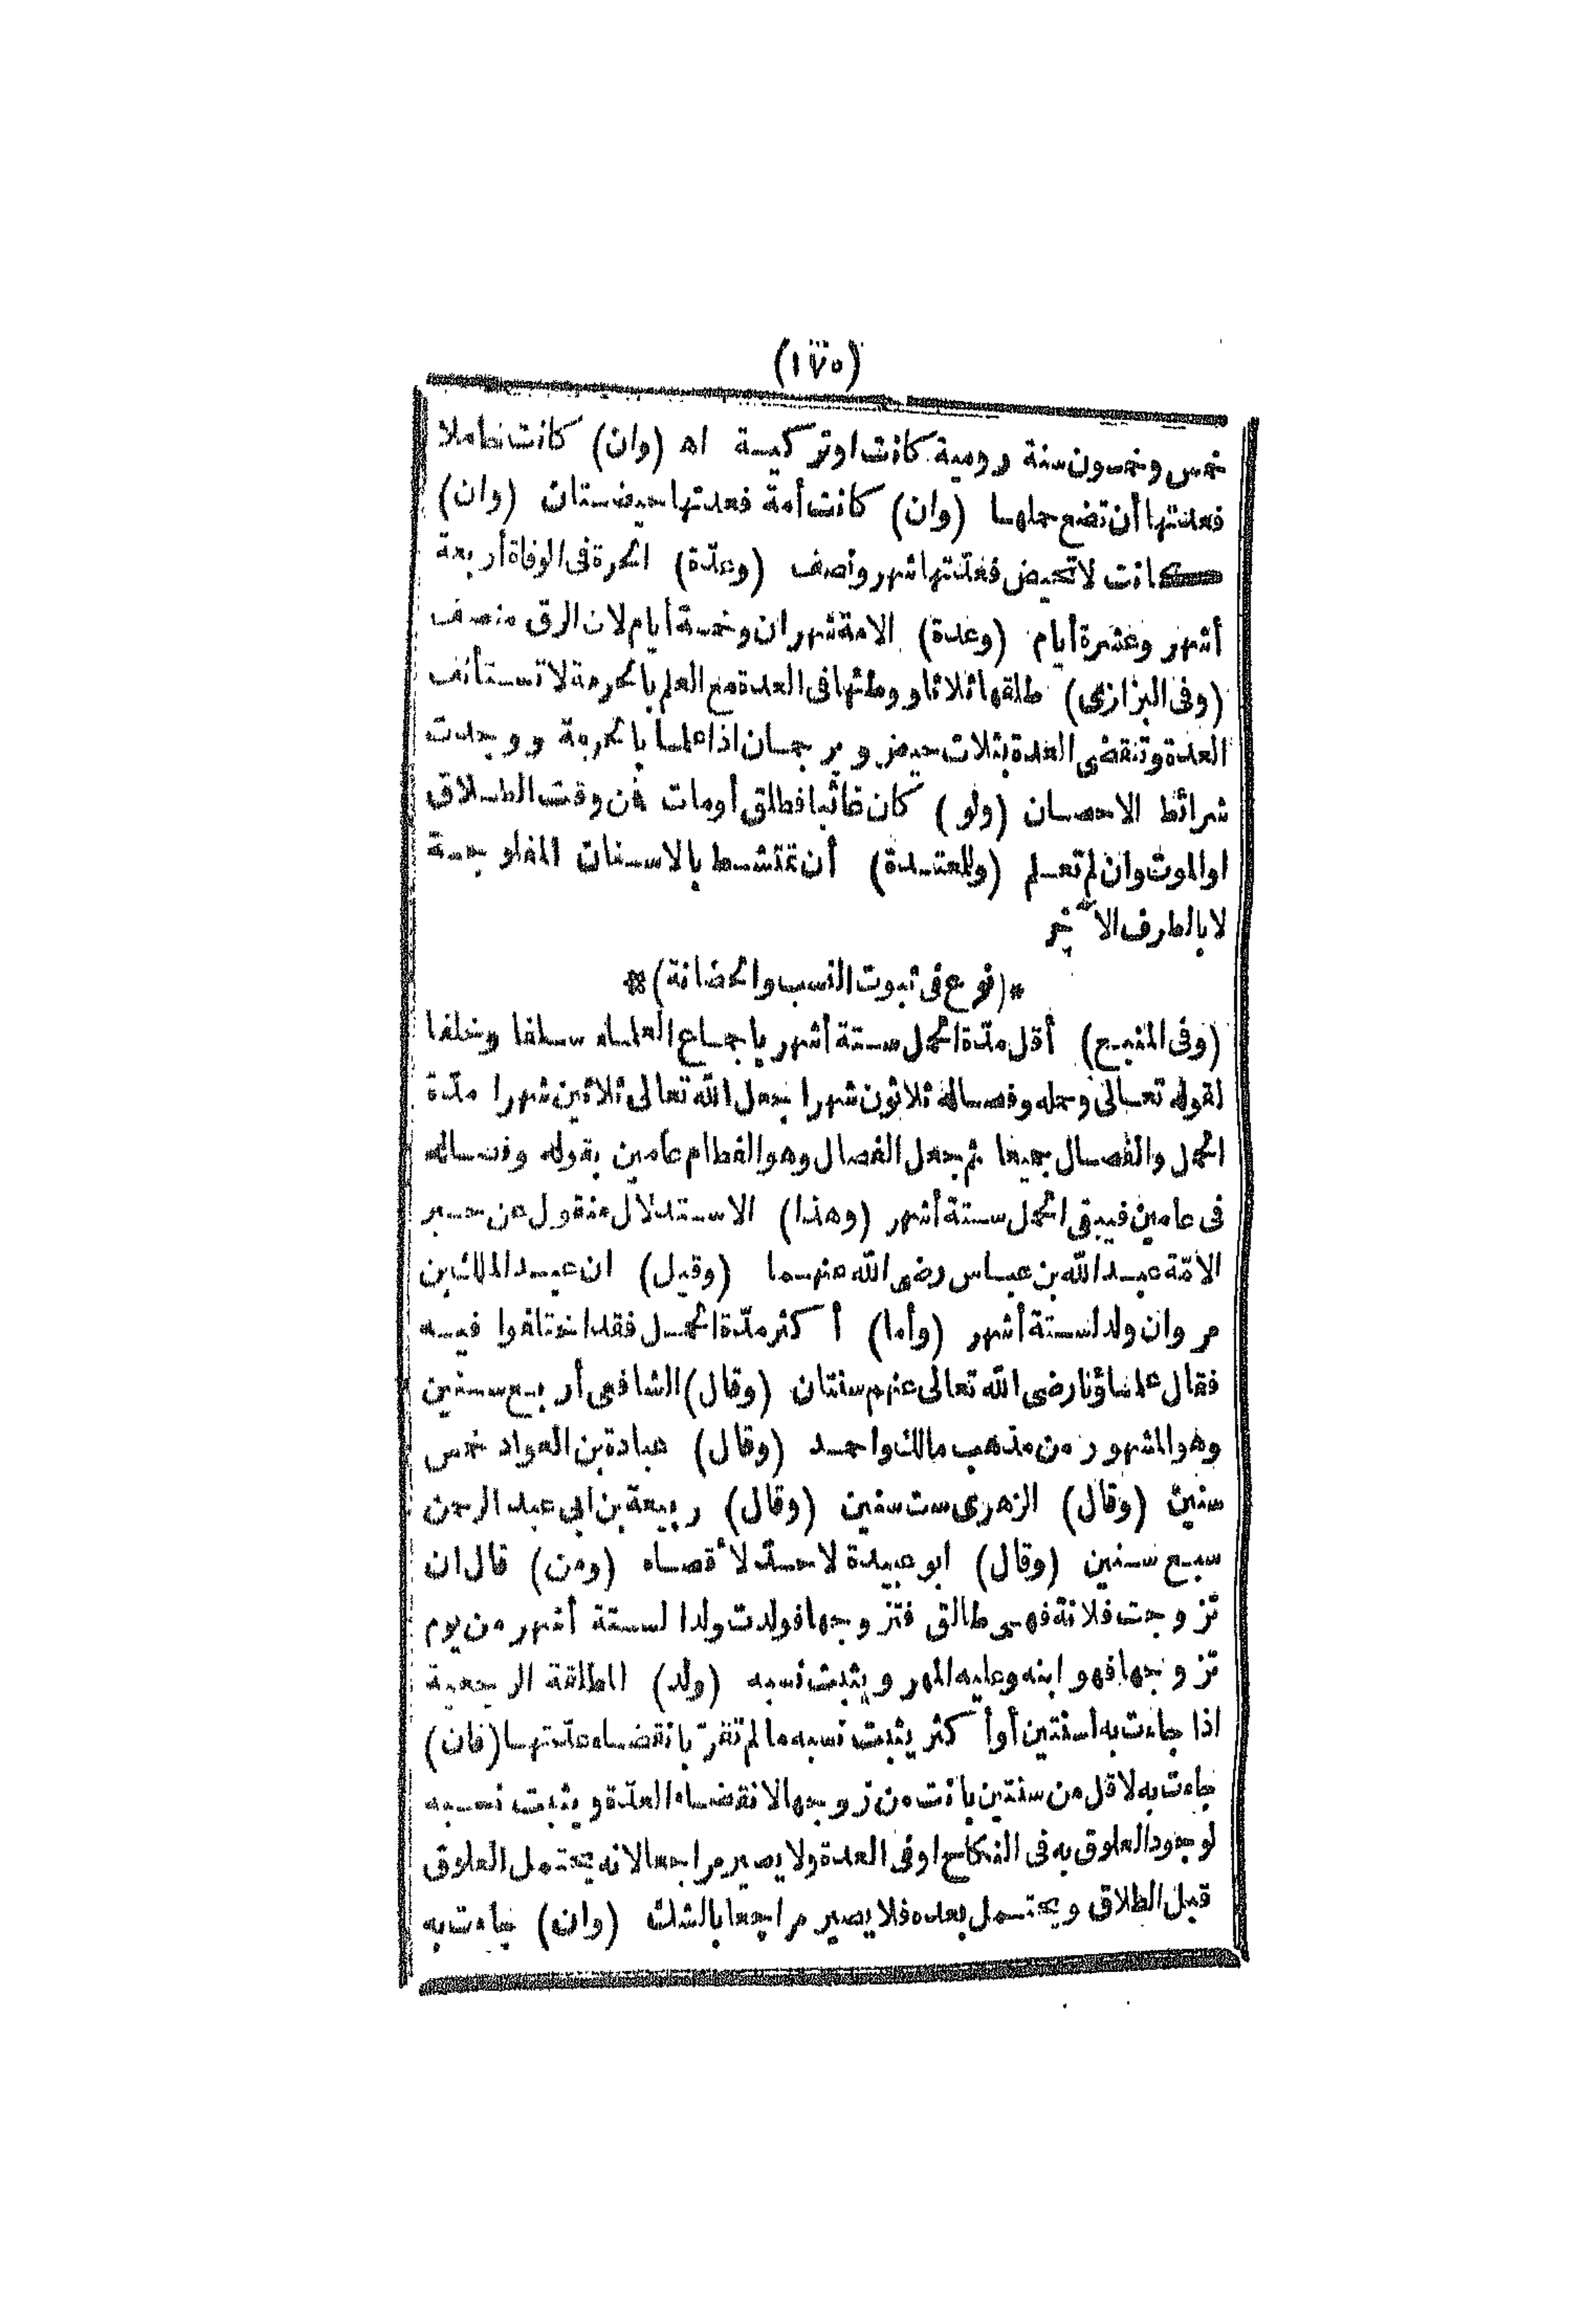 (١٧٥)
خمس وخمسون سنة رومية كانت اوتركية اه (وان) كانت حاملا
فعدتها أن تضع حملها (وان) كانت أمة فعدتها حيضتان (وان)
كانت لا تحيض فعدّتها شهر ونصف (وعدّة) الحرة فى الوفاة أربعة
أشهر وعشرة أيام (وعدة) الامة شهران وخمسة أيام لان الرق منصف
(وفى البزازى) طلقها ثلاثا ووطئها فى العدة مع العلم بالحرمة لا تستأنف
العدة وتنقضى العدة بثلاث حيض ويرجمان اذا علما بالحرمة ووجدت
شرائط الاحصان (ولو) كان غائبا فطلق أومات فمن وقت الطلاق
او الموت وان لم تعلم (وللمعتدة) أن تمتشط بالاسنان المفلوجة
لا بالطرف الآخر
*(نوع فى ثبوت النسب والحضانة)*
(وفى المنبع) أقل مدّة الحمل ستة أشهر باجماع العلماء سلفا وخلفا
لقوله تعالى وحمله وفصاله ثلاثون شهرا جعل الله تعالى ثلاثين شهرا مدّة
الحمل والفصال جميعا ثم جعل الفصال وهو الفطام عامين بقوله وفصاله
فى عامين فيبقى الحمل ستة أشهر (وهذا) الاستدلال منقول عن حبر
الامّة عبد الله بن عباس رضى الله عنهما (وقيل) ان عبد الملك بن
مروان ولد لستة أشهر (وأما) أكثر مدّة الحمل فقد اختلفوا فيه
فقال علماؤنا رضى الله تعالى عنهم سنتان (وقال) الشافعى أربع سنين
وهو المشهور من مذهب مالك واحمد (وقال) عبادة بن العواد خمس
سنين (وقال) الزهرى ست سنين (وقال) ربيعة بن ابى عبد الرحمن
سبع سنين (وقال) ابو عبيدة لا حدّ لأقصاه (ومن) قال ان
تزوجت فلانة فهى طالق فتزوجها فولدت ولدا لستة أشهر من يوم
تزوجها فهو ابنه وعليه المهر ويثبت نسبه (ولد) المطلقة الرجعية
اذا جاءت به لسنتين أو أكثر يثبت نسبه ما لم تقرّ بانقضاء عدّتها (فان)
جاءت به لاقل من سنتين بانت من زوجها لانقضاء العدّة ويثبت نسبه
لوجود العلوق به فى النكاح او فى العدة ولا يصير مراجعا لانه يحتمل العلوق
قبل الطلاق ويحتمل بعده فلا يصير مراجعا بالشك (وان) جاءت به